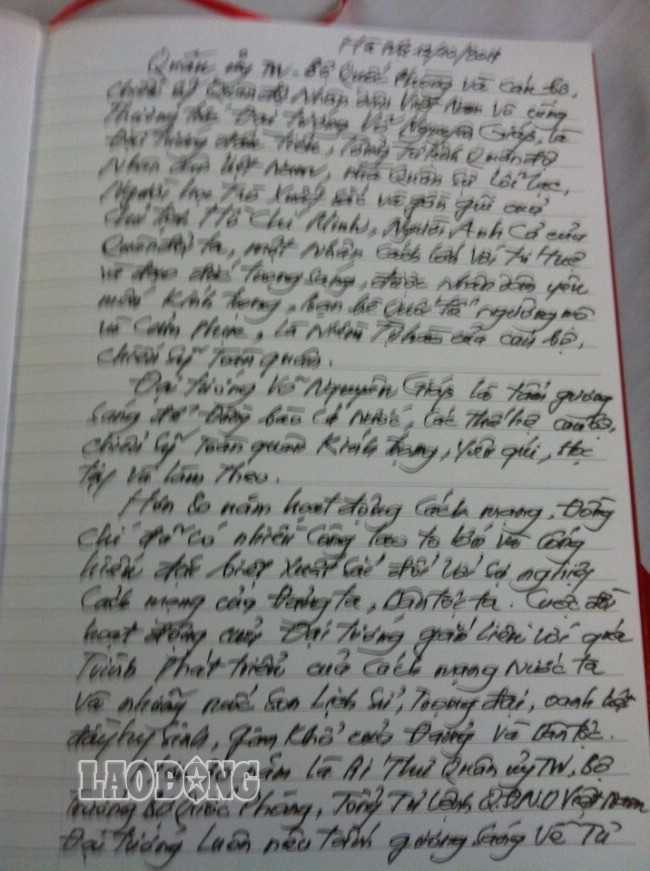 Hà Nội 12/10/2014
Quân ủy TW - Bộ Quốc Phòng và cán bộ,
chiến sỹ Quân đội Nhân dân Việt Nam vô cùng
Thương tiếc Đại tướng Võ Nguyên Giáp, là
Đại tướng đầu tiên, Tổng Tư lệnh Quân đội
Nhân dân Việt Nam, nhà Quân sự lỗi lạc,
Người học trò xuất sắc và gần gũi của
Chủ tịch Hồ Chí Minh, Người Anh Cả của
Quân đội ta, một nhân cách lớn với trí tuệ
và đạo đức trong sáng, được nhân dân yêu
mến kính trọng, bạn bè Quốc tế ngưỡng mộ
và Cảm phục, là niềm Tự hào của cán bộ,
chiến sỹ toàn quân.
Đại tướng Võ Nguyên Giáp là tấm gương
sáng để Đồng bào Cả Nước, các thế hệ cán bộ,
chiến sỹ toàn quân Kính trọng, yêu quí, học
tập và làm theo.
Hơn 80 năm hoạt động Cách mạng, Đồng
chí đã có nhiều công lao to lớn và cống
hiến đặc biệt xuất sắc đối với sự nghiệp
Cách mạng của Đảng ta, Dân tộc ta. Cuộc đời
hoạt động của Đại tướng gắn liền với quá
Trình phát triển của Cách mạng Nước ta
và những mốc son lịch sử, trọng đại, oanh liệt
đầy hy sinh, gian khổ của Đảng và Dân tộc.
năm là Bí Thư Quân ủy TW, Bộ
LAO ĐỘNG
trưởng Bộ Quốc Phòng, Tổng Tư lệnh QĐND Việt Nam
Đại tướng luôn nêu tấm gương sáng về Tư